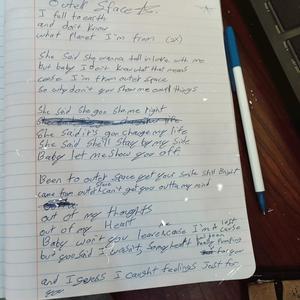 Outer Space
I fell to earth
and don't know
what planet I'm from (2x)
She said she wanna fall in love with me
but baby I don't know what that means
cause I'm from outer space
so why don't you show me things
She said she gon she me right
She said it's gon change my life
She said she'll stay by my side
Baby let me show you off
Been to outer space yet your smile still Bright
came from outer space can't get you outta my mind
out of my thoughts
out of my Heart
Baby won't you leave me cause I'm a lost cause
but you said I wasn't, so my heart been Pumping
for you
and I guess I caught feelings Just for
you